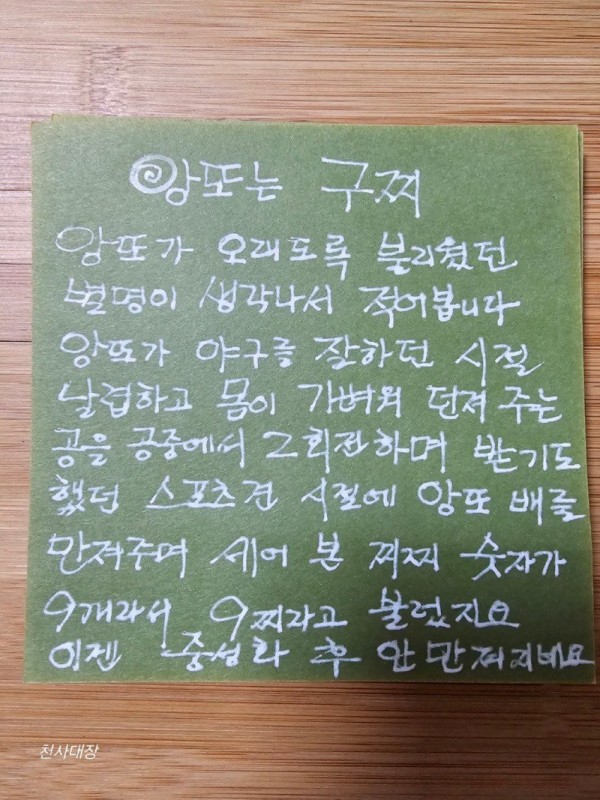 앙또는 구찌
앙또가 오래도록 불리웠던
별명이 생각나서 적어봅니다
앙또가 야구를 잘하던 시절
날렵하고 몸이 가벼워 던져 주는
공을 공중에서 2회전하며 받기도
했던 스포츠견 시절에 앙또 배를
만져주며 세어 본 찌찌 숫자가
9개라서 9찌라고 불렀지요
이젠 중성화 후 안 만져지네요
천사대장